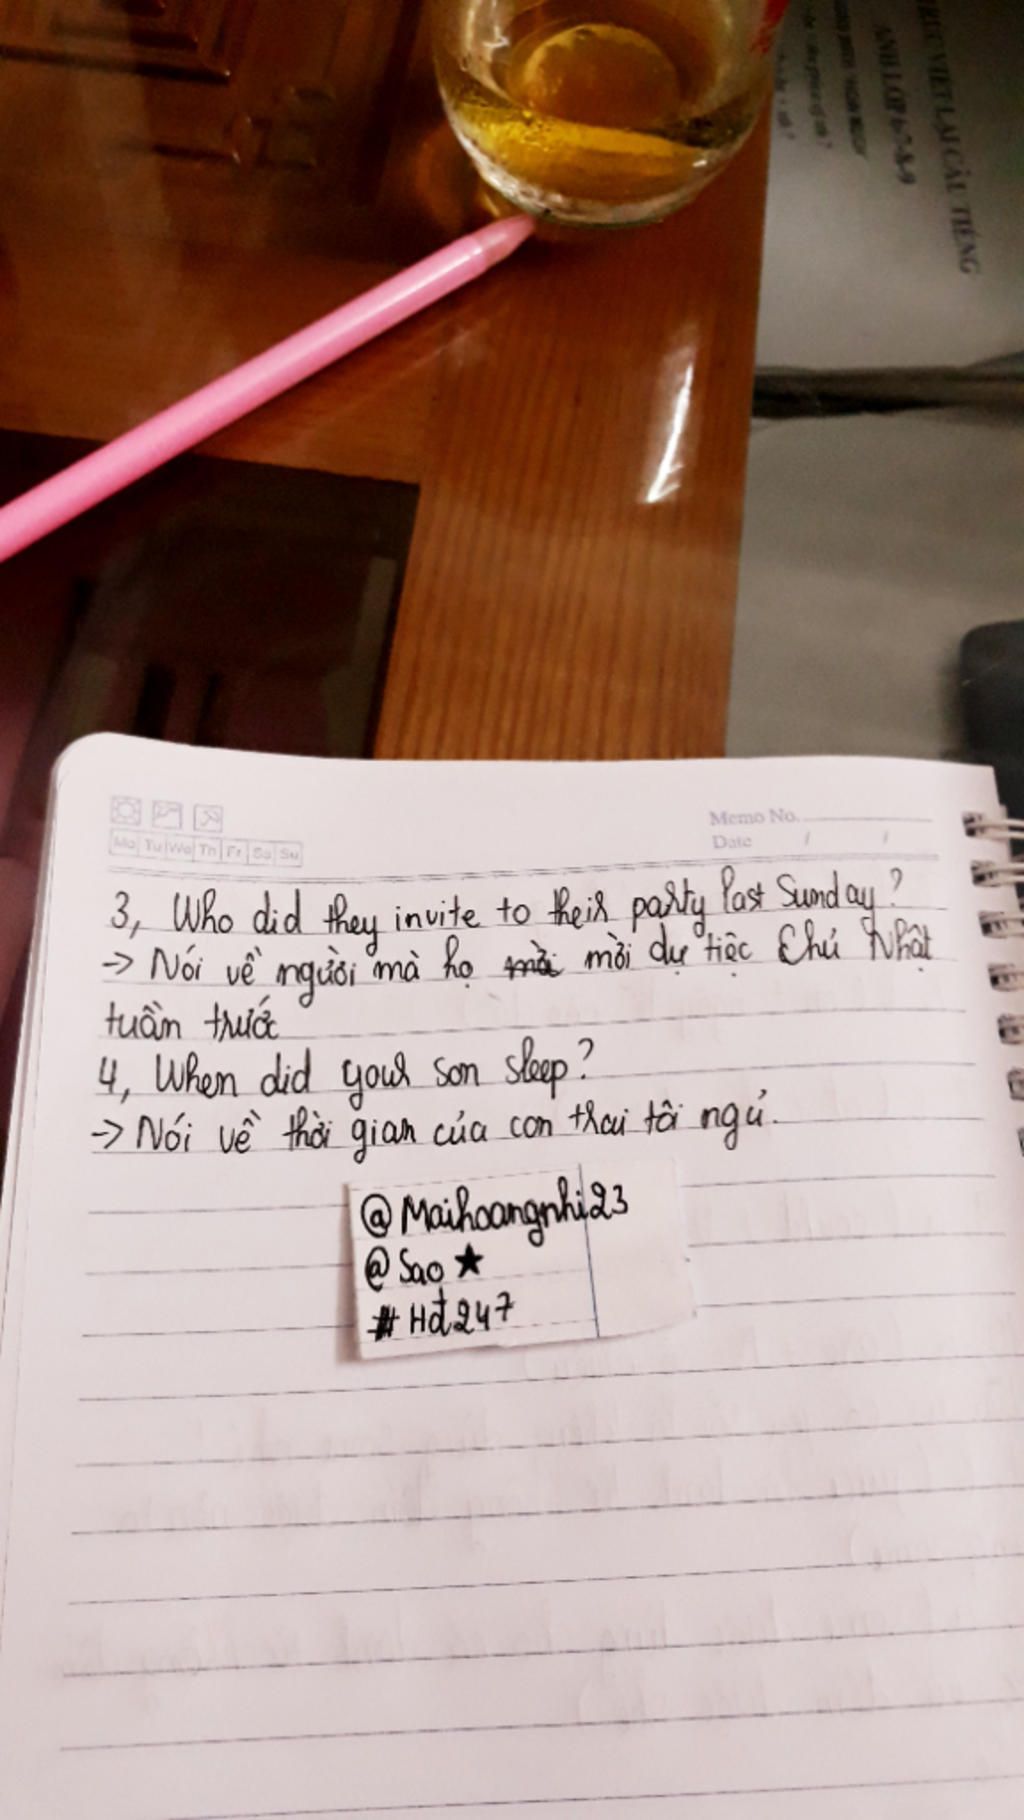 VIẾT LẠI CÂU TIẾNG
ANH LỚP 6-7-8-9
Memo No.
Date / /
Mo Tu We Th Fr Sa Su
3, Who did they invite to their party last Sunday?
→ Nói về người mà họ mời dự tiệc Chủ Nhật
tuần trước
4, When did your son sleep?
→ Nói về thời gian của con trai tôi ngủ.
@Maihoangnhi23
@Sao ★
#Hđ247